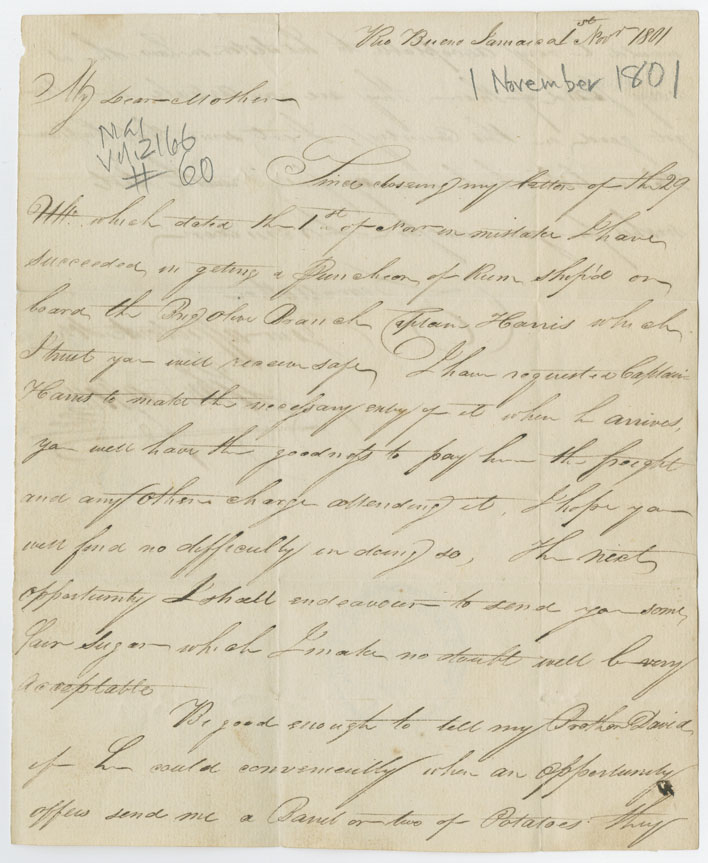 Rio Bueno Jamaica 1st Novr 1801
1 November 1801
My Dear Mother
Ms
2166
# 60
Since closing my letter of the 29
Ulto which dated the 1st of Novr in mistake I have
succeeded in geting a Puncheon of Rum ship'd on
board the Brig Olive Branch Captain Harris which
I trust you will receive safe, I have requested Captain
Harris to make the necessary entry of it when he arrives,
you will have the goodness to pay him the freight
and any other charge attending it, I hope you
will find no difficulty in doing so, The next
opportunity I shall endeavour to send you some
Pure Sugar which I make no doubt will be very
acceptable
Be good enough to tell my Brother David
if he could conveniently when an opportunity
offers send me a Barrel or two of Potatoes they